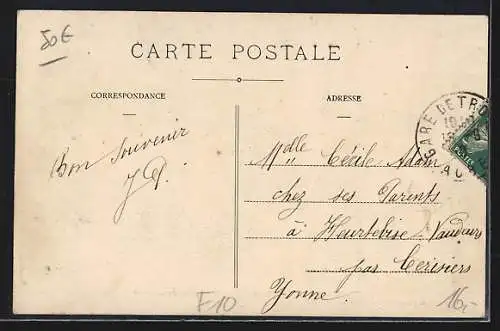 50€
CARTE POSTALE
CORRESPONDANCE
ADRESSE
GARE DE TRO
Bon Souvenir
J
Mdlle Cécile Adam
chez ses Parents
à Heurtebise-Vaudeurs
par Cerisiers
Yonne.
F10
16,-